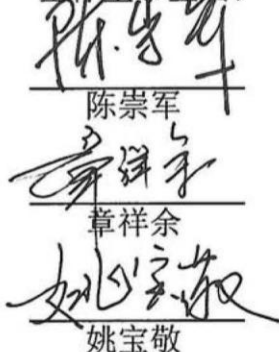 陈崇军
陈崇军
章祥余
章祥余
姚宝敬
姚宝敬